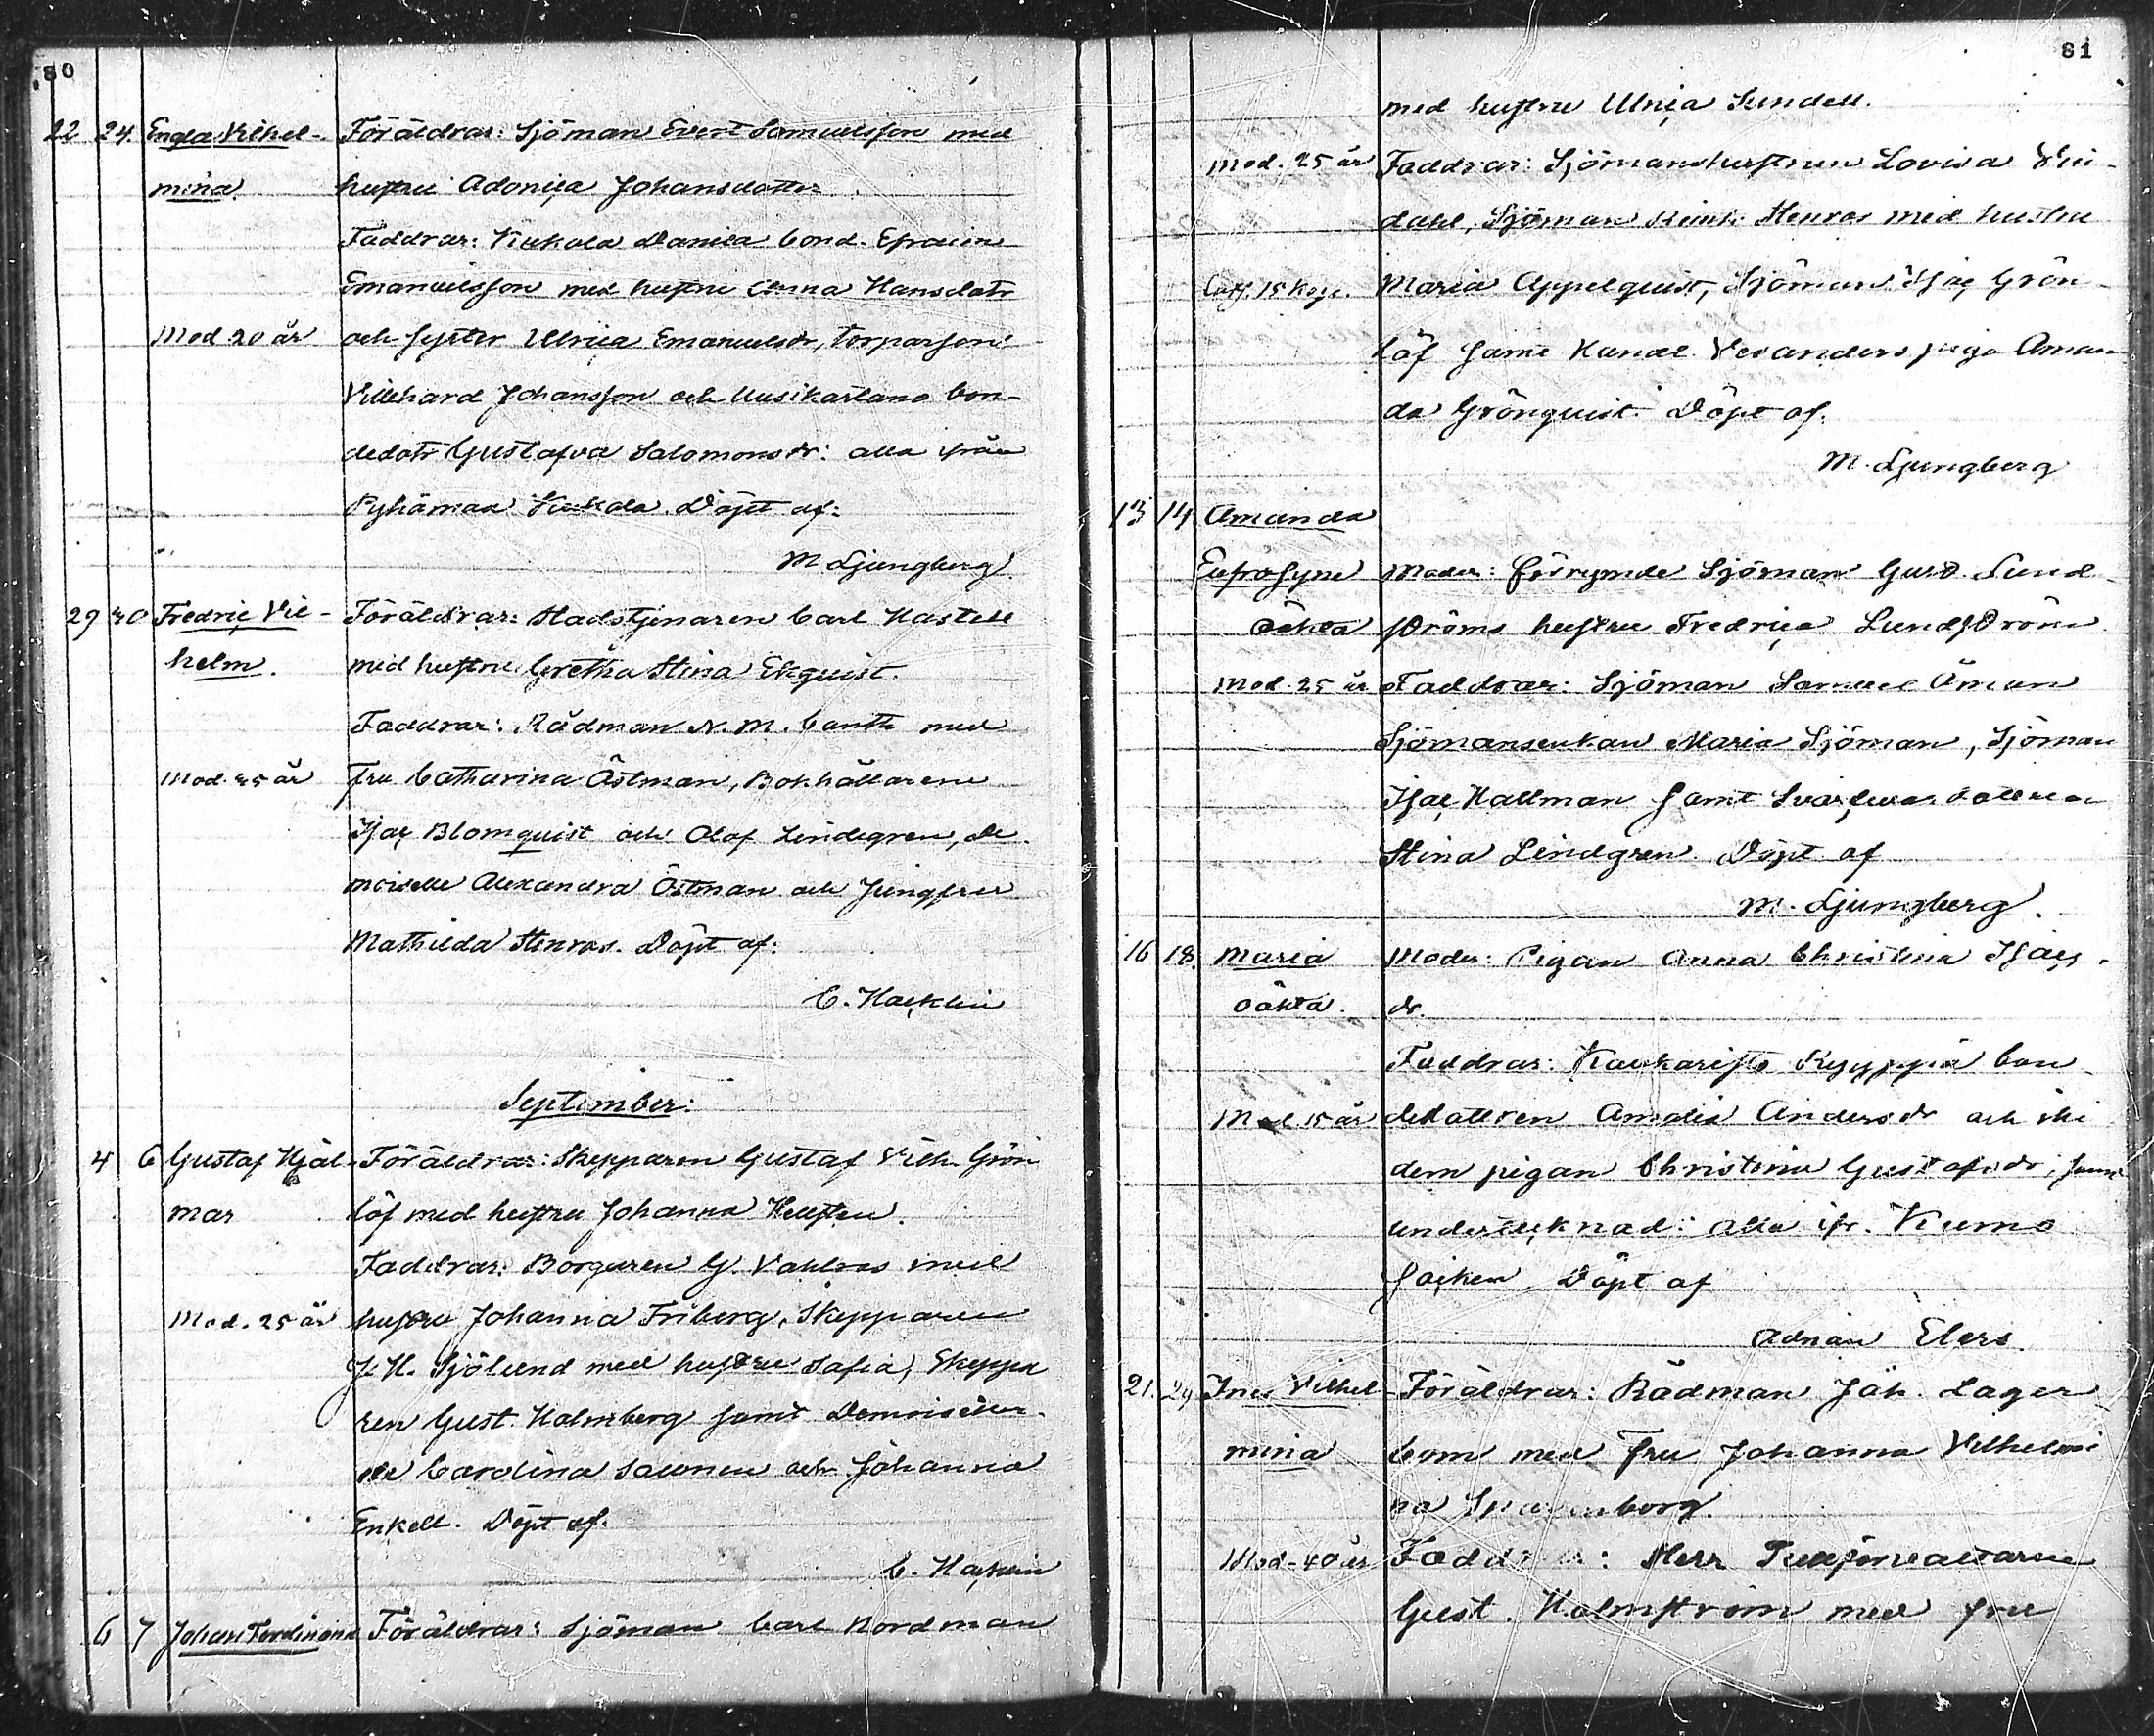 80
22 24. Engla Vilhel- Föräldrar: Sjöman Evert Samuelsson med
mina. hustru Adoniça Johansdotter.
Faddrar: Kukola Daniela bond. Efraim
Emanuelsson med hustru Anna Hansdotr
Mod 20 år och syster Ulrica Emanuelsdr, torparson
Villehard Johansson och Uusikartano bon-
dedotr Gustafva Salomonsdr: alla från
Pyhämaa Kukola. Döpt af:
M Ljungberg
29 30 Fredric Vil- Föräldrar: Stadstjenaren Carl Hastell
helm. med hustru Gretha Stina Ekquist.
Faddrar: Rådman N. M. Canth med
Mod. 25 år fru Catharina Östman, Bokhållarene
Isac Blomquist och Olof Lindegren, De-
moiselle Alexandra Östman och Jungfrur
Mathilda Stenros. Döpt af:
C. Hacklin
September:
4 6 Gustaf Hjal- Föräldrar: Skepparen Gustaf Vilh. Grön
mar löf med hustru Johanna
Faddrar: Borgaren G. Vahlroos med
Mod. 25 år hustru Johanna Friberg, Skepparen
J. H. Sjölund med hustru Sofia, Skeppa
ren Gust. Holmberg samt Demoiseller-
ne Carolina Salonen och Johanna
Enkell. Döpt af.
C. Hacklin
6 7 Johan Ferdinand Föräldrar: Sjöman Carl Nordman
81
med hustru Ulriça Sundell.
Mod. 25 år Faddrar: Sjömanshustrun Lovisa Vin-
dahl, Sjöman Henros med hustru
15 kop. Maria Appelquist, Sjöman Isac Grön-
löf samt Veranders piga Aman-
da Grönquist. Döpt af.
M. Ljungberg
13 14 Amanda
Eufrosyne Moder: förrymde Sjöman Gust. Lund-
oäkta ströms hustru Fredrica Lundström
Mod. 25 år Faddrar: Sjöman Samuel Öman
Sjömansenkan Maria Sjöman, Sjöman
Isac Hallman samt Svarfvardottren
Stina Lindgren. Döpt af
M. Ljungberg.
16 18. Maria Moder: Pigan Anna Christina Isacs-
oäkta. dr.
Faddrar: Kaukaristo Ryyppiä bon-
Mod. 15 år dedottren Amalia Andersdr och
dem pigan Christina Gustafsdr, samt
undertecknad: alla ifr. Kumo
socken Döpt af
Adrian Elers.
21. 29 Ines Vilhel- Föräldrar: Rådman Joh. Lager
mina bom med Fru Johanna Vilhelmi
na
Mod. 40 år Faddrar: Herr Tullförvaltaren
Gust. Holmström med fru